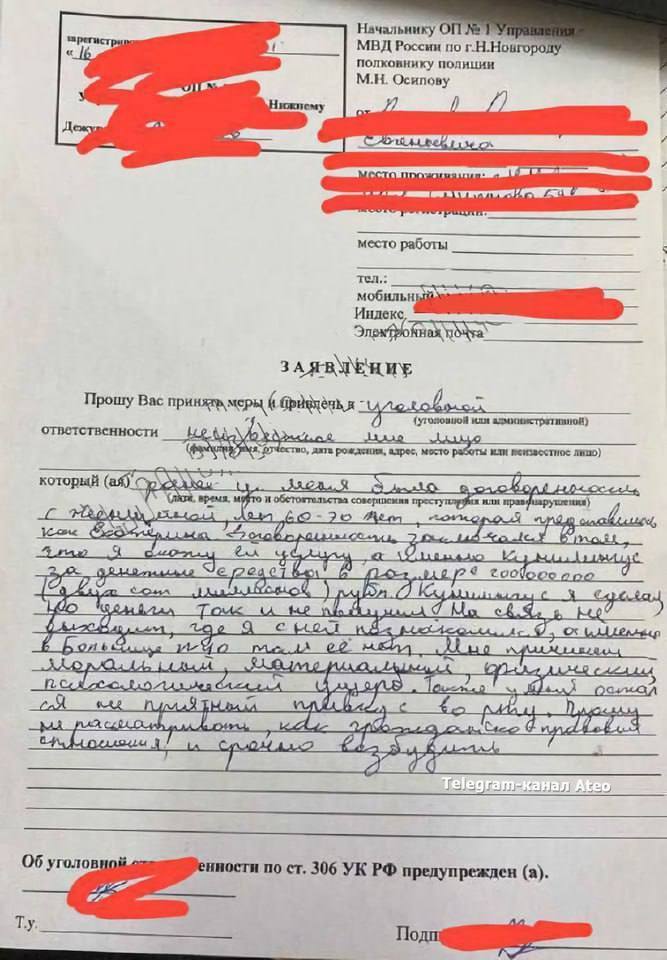 зарегистриро
«16
ОП №
Нижнему
Дежу
Начальнику ОП № 1 Управления
МВД России по г.Н.Новгороду
полковнику полиции
М.Н. Осипову
от
Евгеньевича
место проживания:
место регистрации:
место работы
тел.:
мобильный
Индекс
Электронная почта
ЗАЯВЛЕНИЕ
Прошу Вас принять меры и привлечь к уголовной
(уголовной или административной)
ответственности неизвестное мне лицо
(фамилия, имя, отчество, дата рождения, адрес, место работы или неизвестное лицо)
который (ая) у меня была договоренность
(дата, время, место и обстоятельства совершения преступления или правонарушения)
с женщиной, лет 60-70 лет, которая представилась
как Екатерина договоренность заключался в том,
что я окажу ей услугу, а именно кунилингус
за денежные средства в размере 200000000
(двух сот миллионов) рубл. Кунилингус я сделал,
но деньги так и не получил На связь не
выходит, где я с ней познакомился, а именно
в Больнице №40 там её нет. Мне причинен
моральный, материальный, физический
психологический ущерб. Также у меня остал
ся не приятный привкус во рту. Прошу
не рассматривать, как гражданско правовия
отношения, и срочно возбудить
Telegram-канал Ateo
Об уголовной ответственности по ст. 306 УК РФ предупрежден (а).
Т.у.
Подп